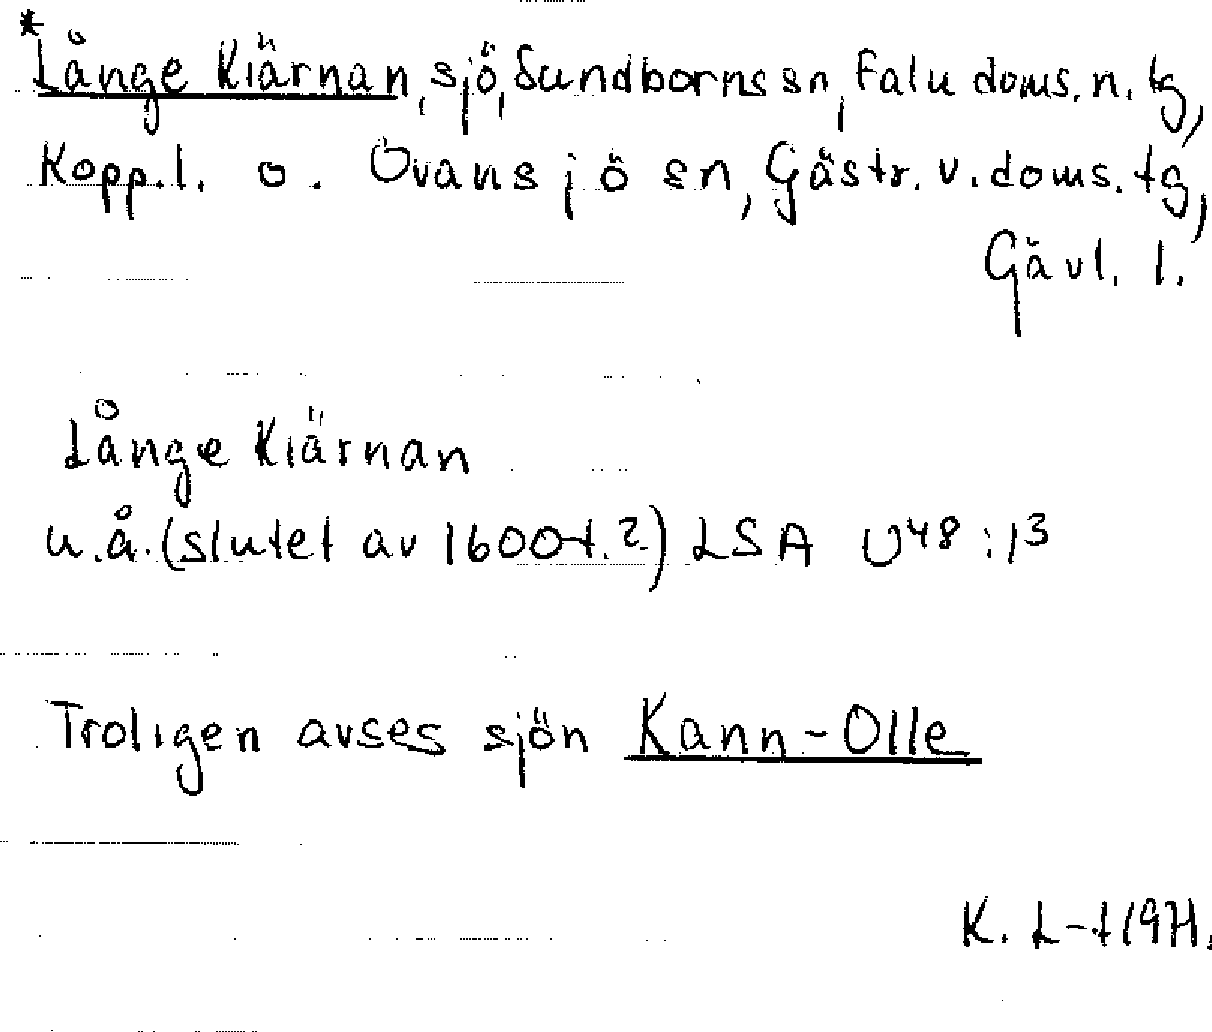 *Långe Kiärnan, sjö, Sundborns sn, Falu doms. n. tg,
Kopp. l. o. Ovansjö sn, Gästr. v. doms. tg,
Gävl. l.
Långe Kiärnan
u.å. (slutet av 1600-t.?) LSA U48:13
Troligen avses sjön Kann-Olle
K. L-t